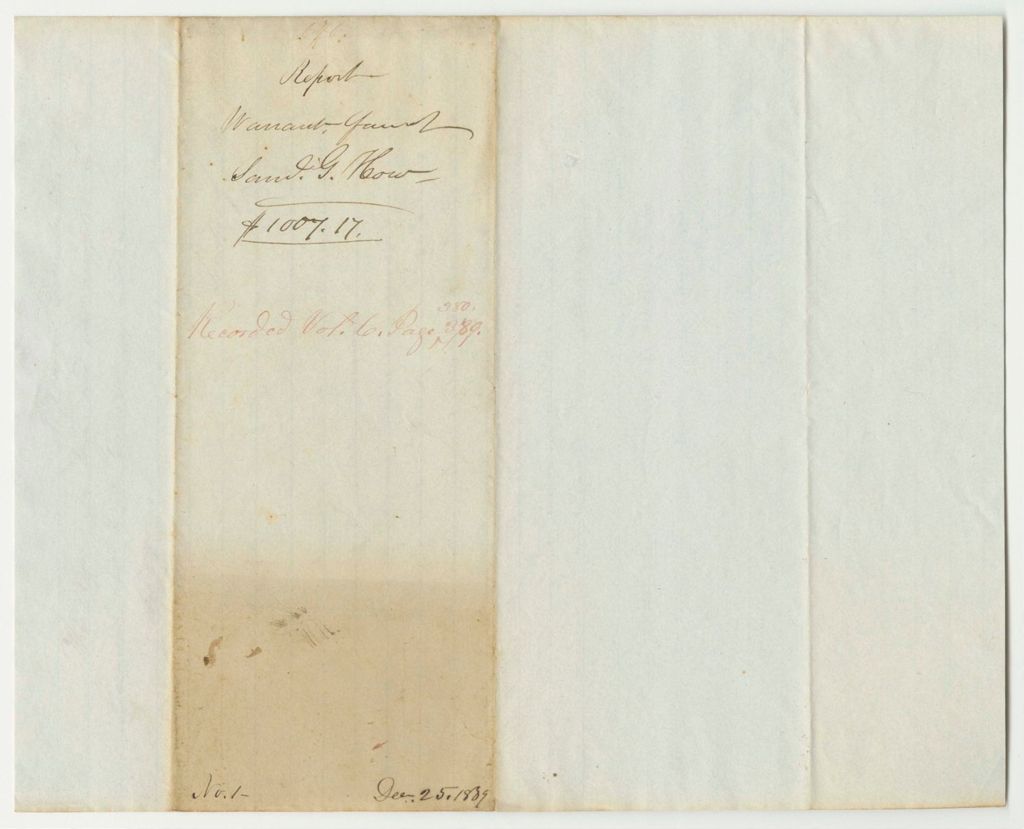 Report
Warrant favor of
Saml. G. How
$1007.17.
Recorded Vol. 6. Page
380.
No. 1-
Dec. 25. 1839